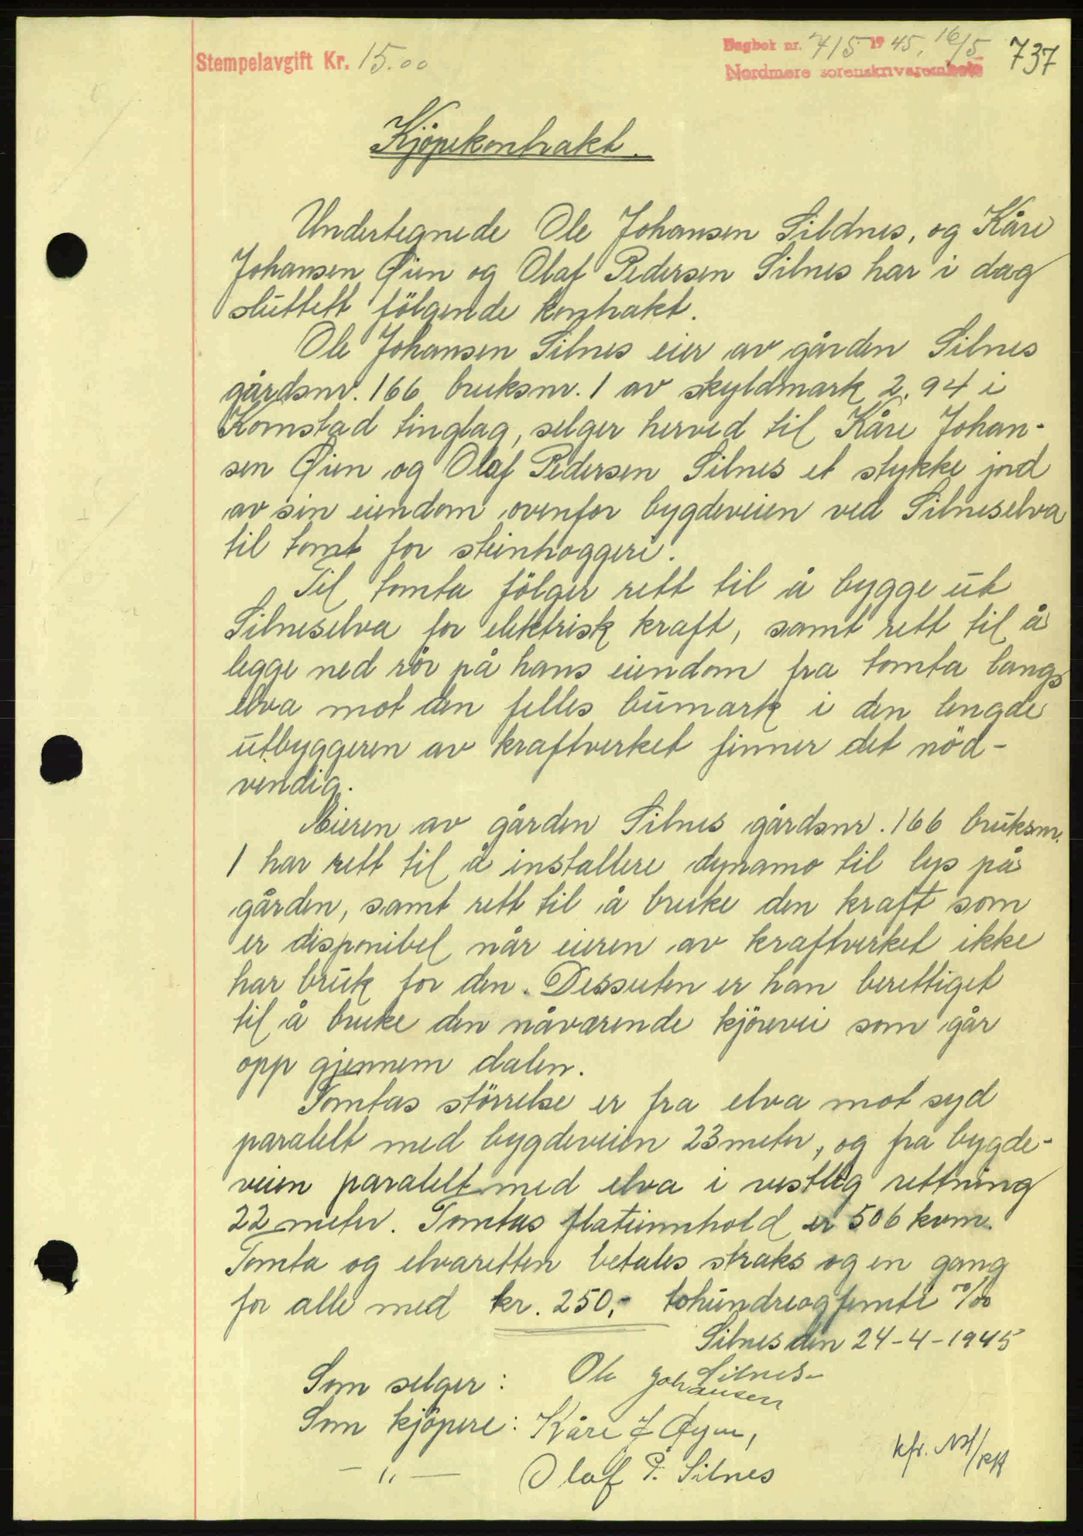 Stempelavgift Kr. 15.00
Dagbok nr. 715 1945, 16/5 737
Nordmøre sorenskriverembete
Kjöpekontrakt.
Undertegnede Ole Johansen Sildnes, og Kåre
Johansen Øien og Olaf Pedersen Silnes har i dag
sluttett fölgende kontrakt.
Ole Johansen Silnes eier av gården Silnes
gårdsnr. 166 bruksnr. 1 av skyldmark 2.94 i
Kornstad tinglag, selger herved til Kåre Johan-
sen Øien og Olaf Pedersen Silnes et stykke jord
av sin eiendom ovenfor bygdeveien ved Silneselva
til tomt for steinhoggeri.
Til tomta fölger rett til å bygge ut
Silneselva for elektrisk kraft, samt rett til å
legge ned rör på hans eiendom fra tomta langs
elva mot den felles bumark i den lengde
utbyggeren av kraftverket finner det nöd-
vendig.
Eieren av gården Silnes gårdsnr. 166 bruksnr.
1 har rett til å installere dynamo til lys på
gården, samt rett til å bruke den kraft som
er disponibel når eieren av kraftverket ikke
har bruk for den. Dessuten er han berettiget
til å bruke den nåværende kjörevei som går
opp gjennem dalen.
Tomtas störrelse er fra elva mot syd
paralelt med bygdeveien 23 meter, og fra bygde-
veien paralelt med elva i vestlig rettning
22 meter. Tomtas flateinnhold er 506 kvm.
Tomta og elvaretten betales straks og en gang
for alle med kr. 250,- tohundreogfemti 00/00
Silnes den 24-4-1945
Som selger: Ole Johansen Silnes-
Som kjöpere: Kåre J Øyen,
— " — Olaf P. Silnes
kfr.